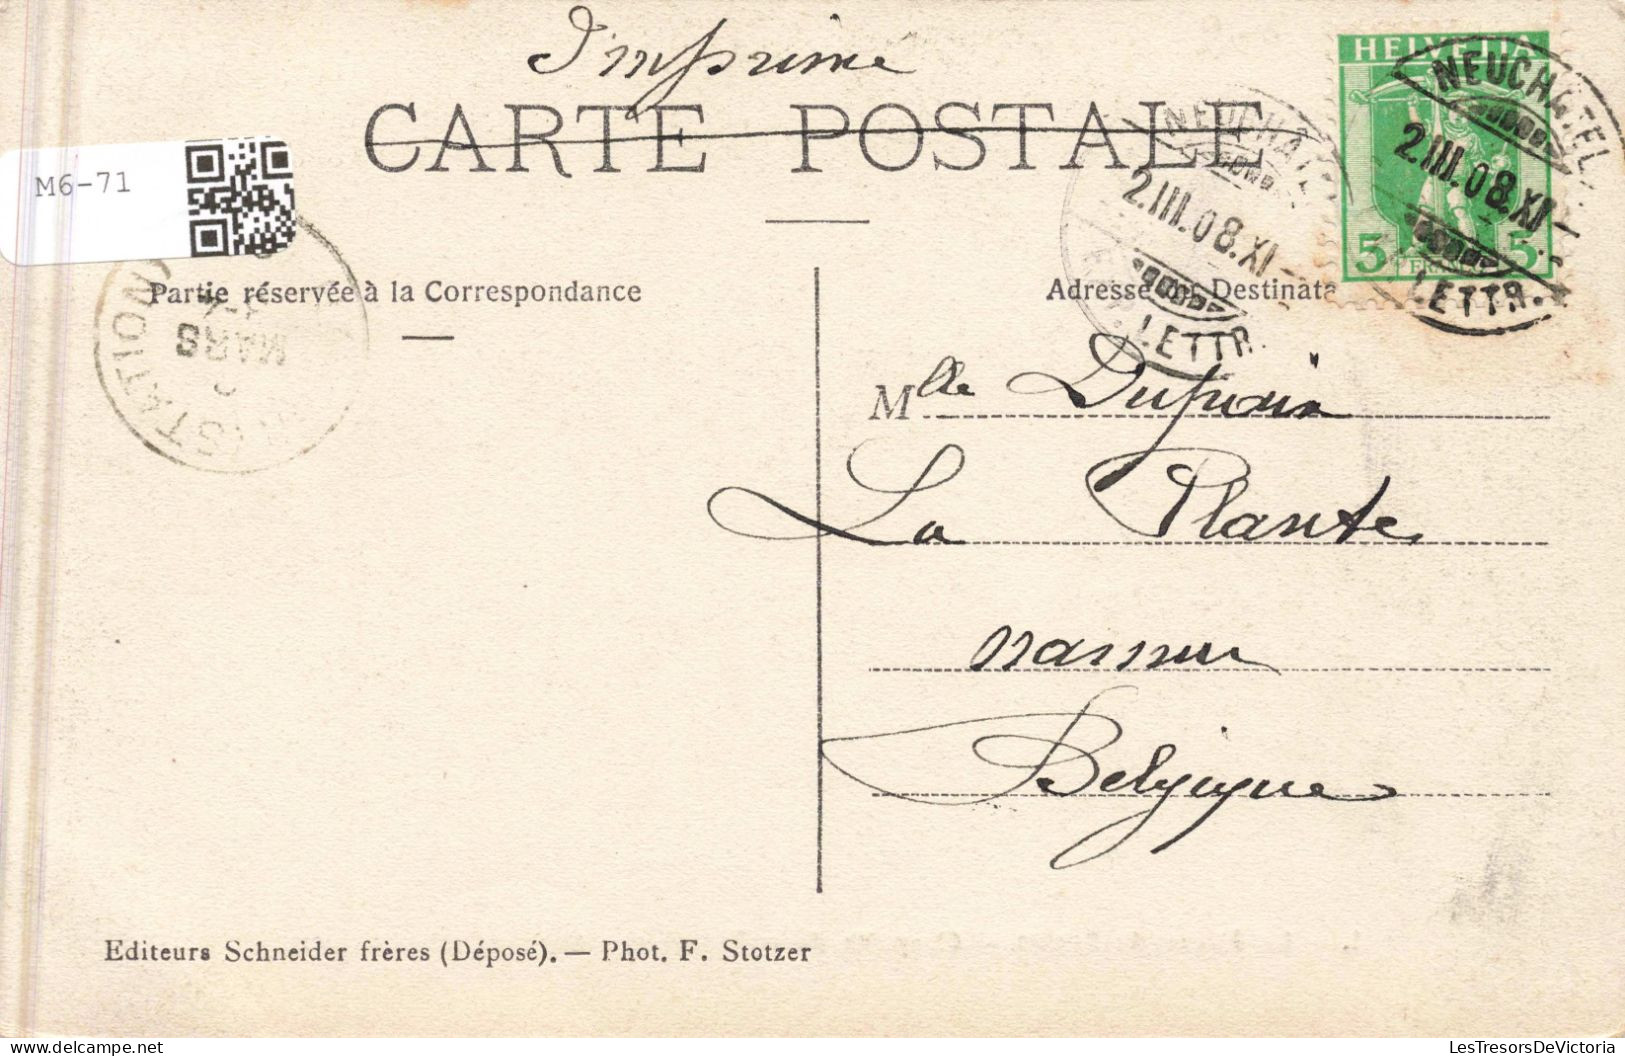 Imprimé
CARTE POSTALE
HELVETIA
5 5
NEUCHATEL
2.III.08.XI
LETTR.
NEUCHATEL
2.III.08.XI-
LETTR.
M6-71
STATION
MARS
Partie réservée à la Correspondance
Adresse du Destinata
Mlle Dupuis
La Plante
Namur
Belgique
Editeurs Schneider frères (Déposé). — Phot. F. Stotzer
LesTresorsDeVictoria